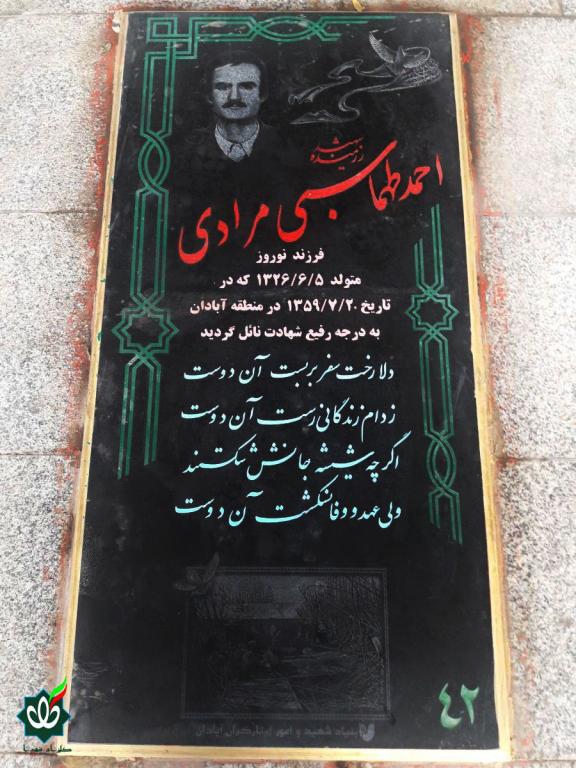 شهید
رزمنده
احمد طهماسبی مرادی
فرزند نوروز
متولد ۱۳۲۶/۶/۵ که در
تاریخ ۱۳۵۹/۷/۲۰ در منطقه آبادان
به درجه رفیع شهادت نائل گردید
دلا رخت سفر بربست آن دوست
ز دام زندگانی رست آن دوست
اگر چه شیشه جانش شکستند
ولی عهد و وفا نشکست آن دوست
۴۲
بنیاد شهید و امور ایثارگران آبادان
گلزار شهدا